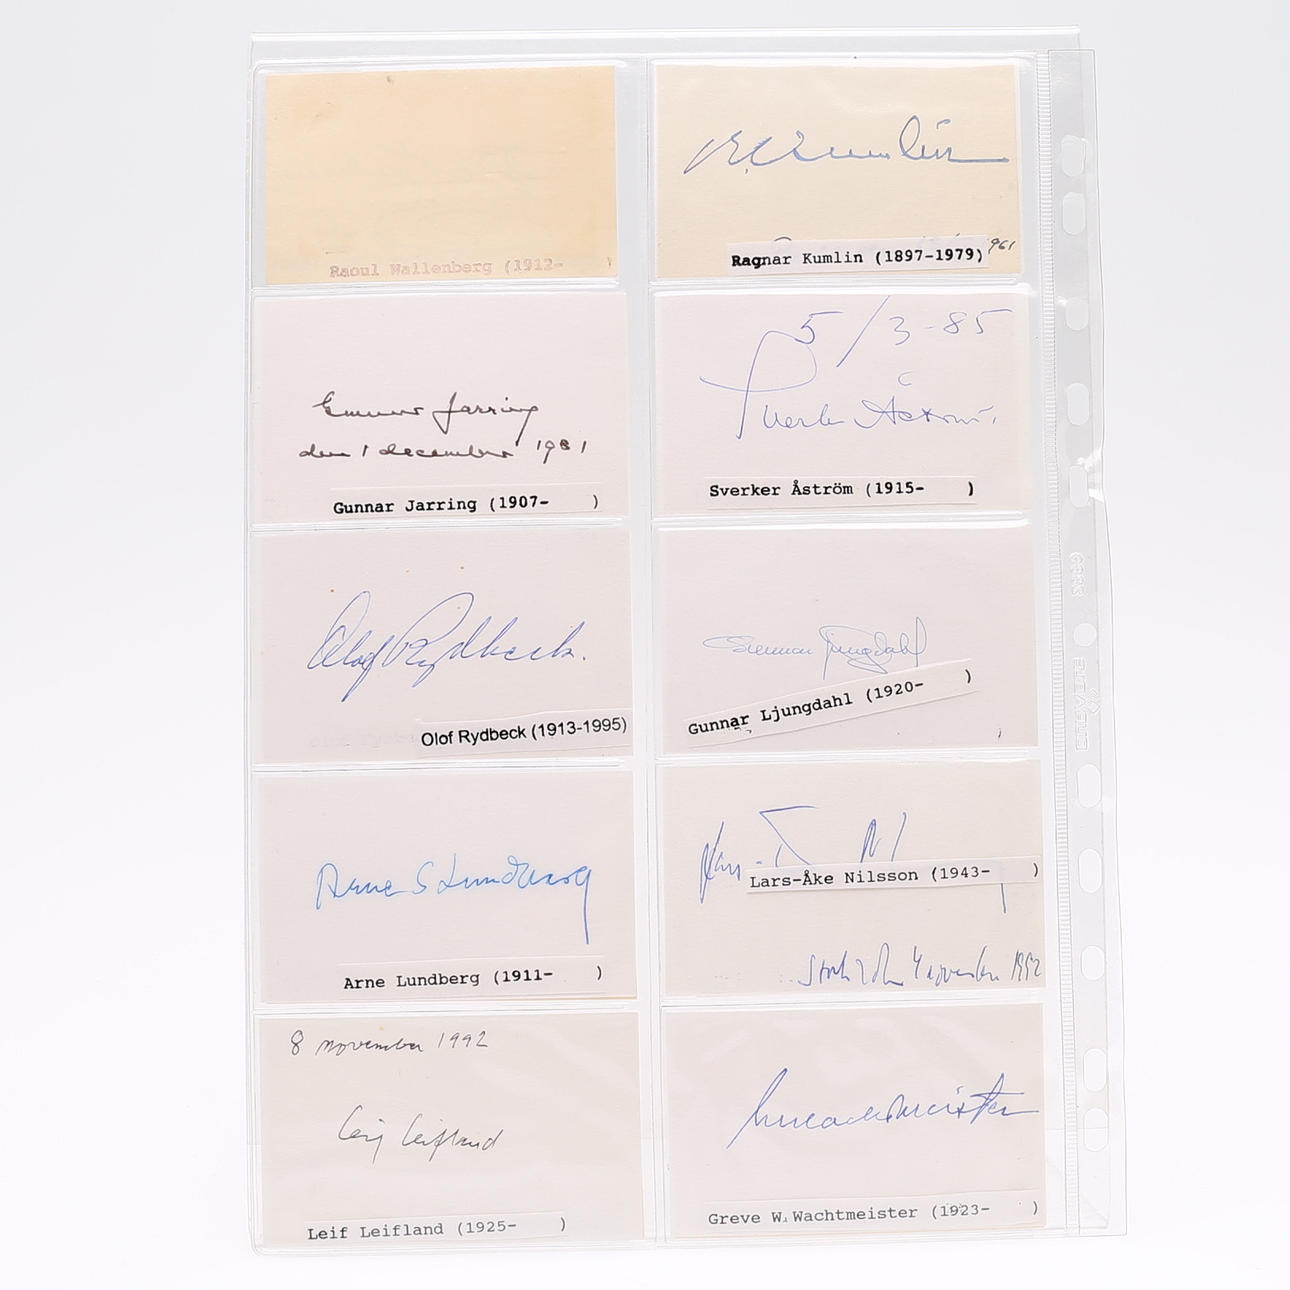 Raoul Wallenberg (1912- )
R. Kumlin
1961
Ragnar Kumlin (1897-1979)
Gunnar Jarring
den 1 december 1981
Gunnar Jarring (1907- )
5/3-85
Sverker Åström
Sverker Åström (1915- )
Olof Rydbeck.
Olof Rydbeck (1913-1995)
Gunnar Ljungdahl
Gunnar Ljungdahl (1920- )
Arne S Lundberg
Arne Lundberg (1911- )
Lars-
Lars-Åke Nilsson (1943- )
Stockholm 4 november 1992
8 november 1992
Leif Leifland
Leif Leifland (1925- )
Wachtmeister
Greve W. Wachtmeister (1923- )